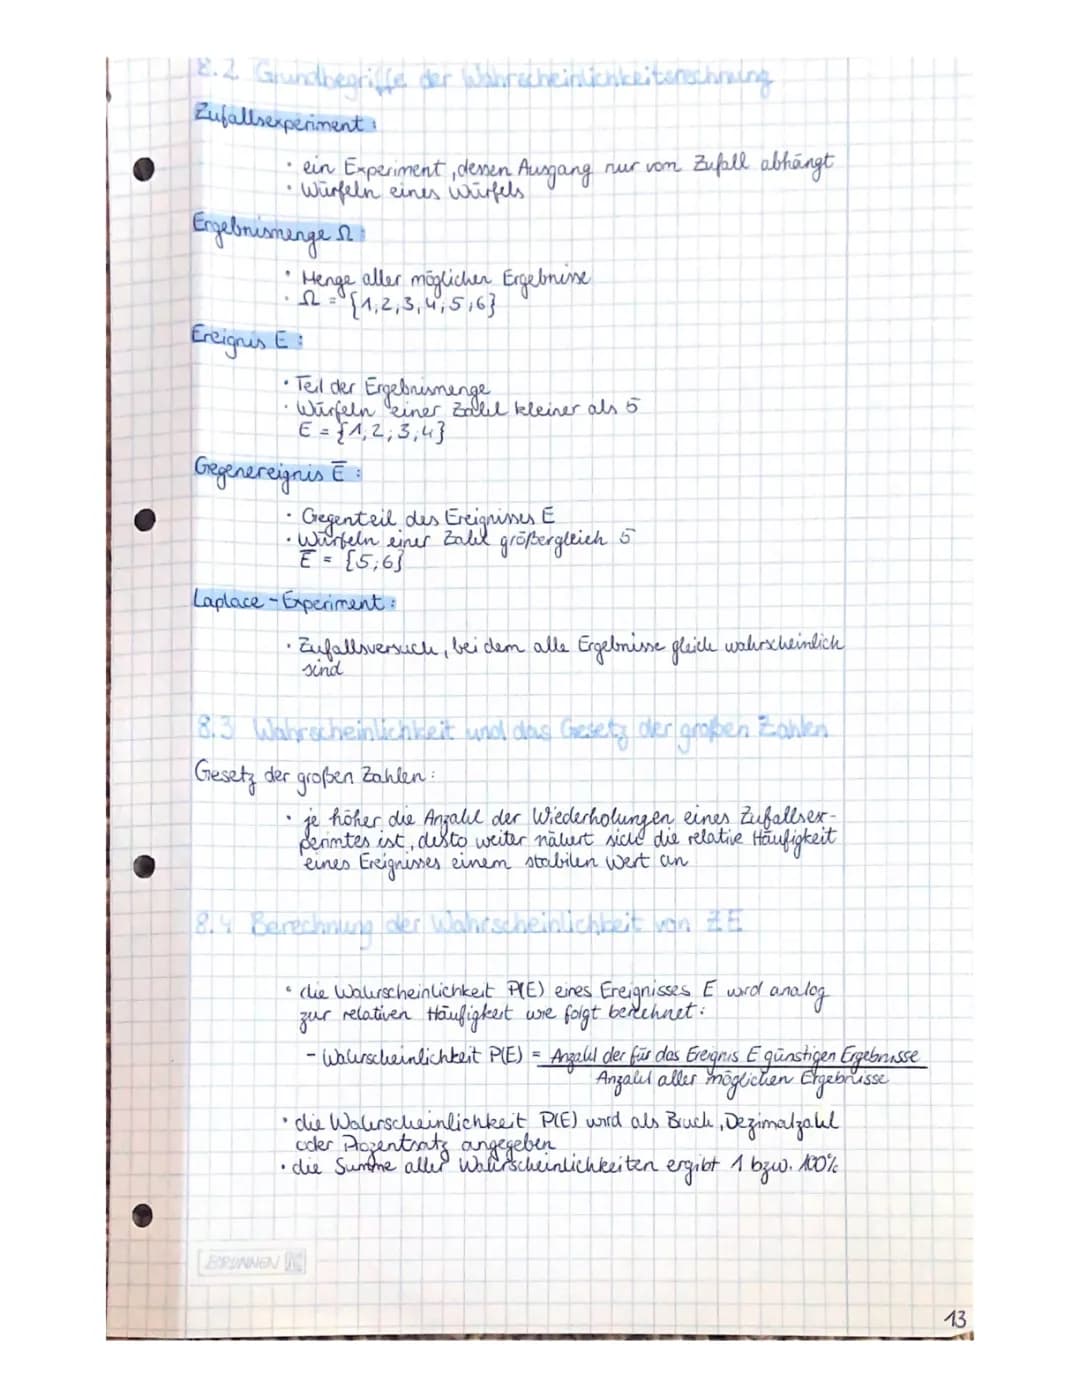 8.2 Grundbegriffe der Wahrscheinlichkeitsrechnung
Zufallsexperiment:
· ein Experiment, dessen Ausgang nur vom Zufall abhängt
· Würfeln eines Würfels
Ergebnismenge Ω:
· Menge aller möglichen Ergebnisse
· Ω = {1,2,3,4,5,6}
Ereignis E:
· Teil der Ergebnismenge
· Würfeln einer Zahl kleiner als 5
E = {1,2,3,4}
Gegenereignis E̅:
· Gegenteil des Ereignisses E
· Würfeln einer Zahl größergleich 5
E̅ = {5;6}
Laplace-Experiment:
· Zufallsversuch, bei dem alle Ergebnisse gleich wahrscheinlich
sind
8.3 Wahrscheinlichkeit und das Gesetz der großen Zahlen
Gesetz der großen Zahlen:
· je höher die Anzahl der Wiederholungen eines Zufallsex-
perimtes ist, desto weiter nähert sich die relative Häufigkeit
eines Ereignisses einem stabilen Wert an
8.4 Berechnung der Wahrscheinlichkeit von ZE
· die Wahrscheinlichkeit P(E) eines Ereignisses E wird analog
zur relativen Häufigkeit wie folgt berechnet:
- Wahrscheinlichkeit P(E) = Anzahl der für das Ereignis E günstigen Ergebnisse
Anzahl aller möglichen Ergebnisse
· die Wahrscheinlichkeit P(E) wird als Bruch, Dezimalzahl
oder Prozentsatz angegeben
· die Summe aller Wahrscheinlichkeiten ergibt 1 bzw. 100%
BRUNNEN
13